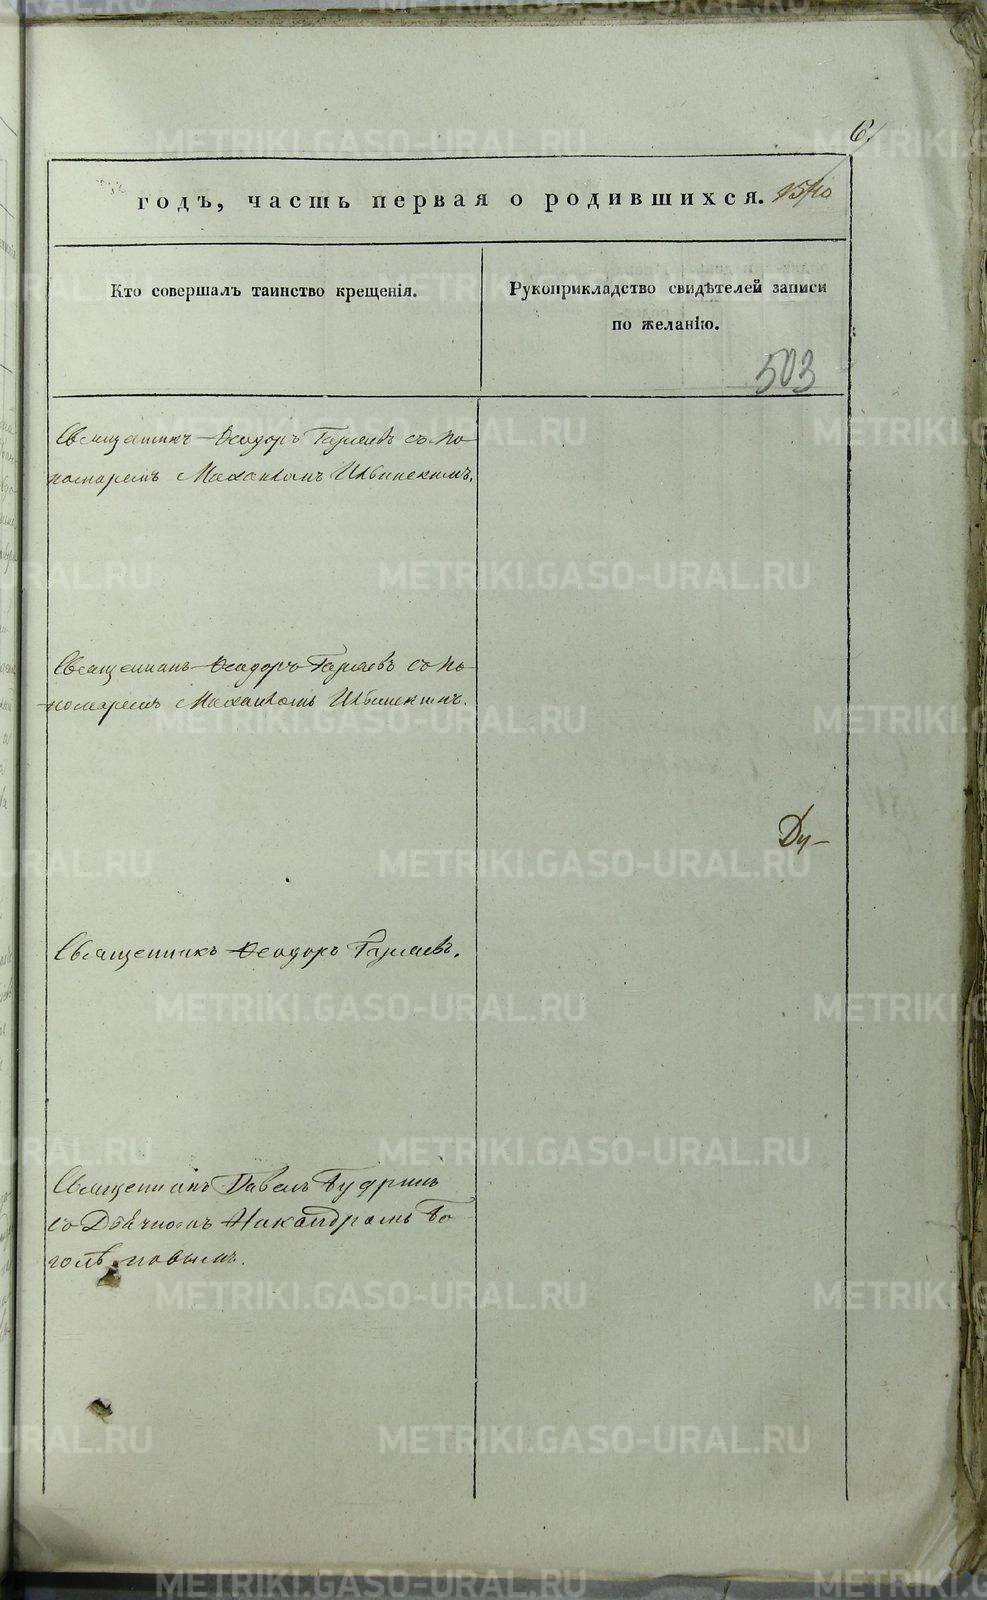 6.
годъ, часть первая о родившихся.
Кто совершалъ таинство крещенія.
Рукоприкладство свидѣтелей записи
по желанію.
503
Священникъ Ѳеодоръ Гаряевъ съ По-
номаремъ Михаиломъ Ильинскимъ.
Священникъ Ѳеодоръ Гаряевъ съ По-
номаремъ Михаиломъ Ильинскимъ.
Ду-
Священникъ Ѳеодоръ Гаряевъ.
Священникъ Павелъ Будринъ
съ Дьячкомъ Никандромъ Бо-
голѣповымъ.
METRIKI.GASO-URAL.RU